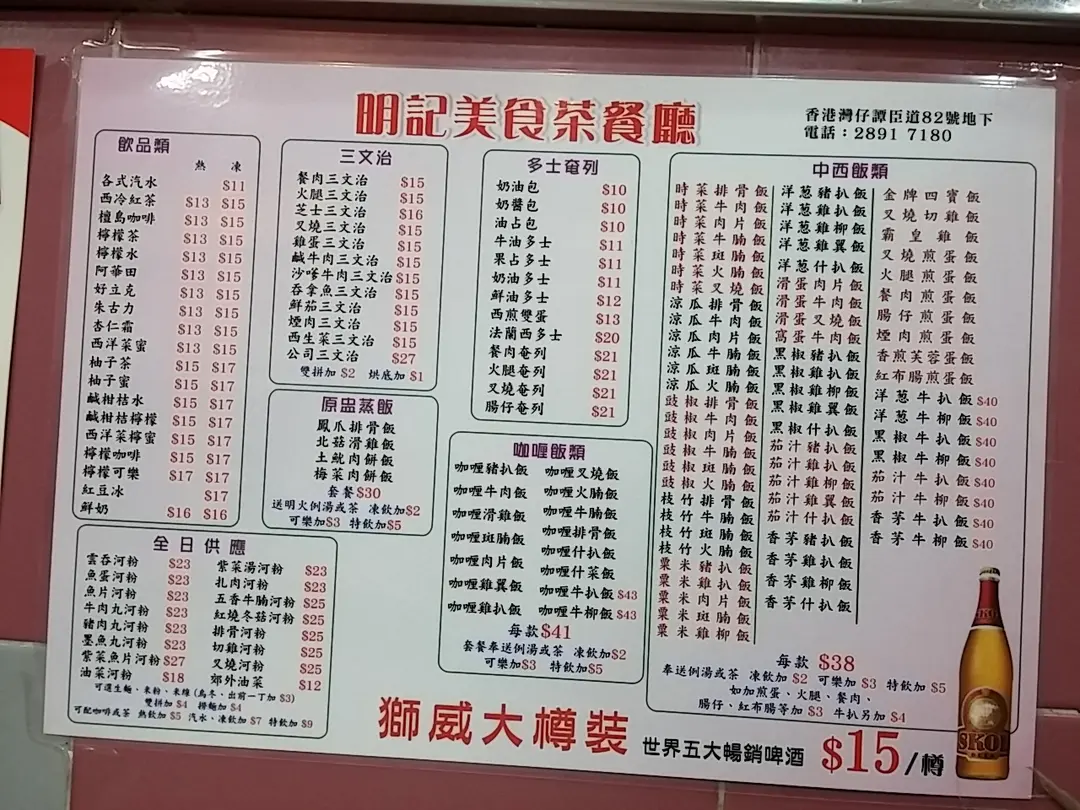 明記美食茶餐廳
香港灣仔譚臣道82號地下
電話：2891 7180
飲品類
熱 凍
各式汽水 $11
西冷紅茶 $13 $15
檀島咖啡 $13 $15
檸檬茶 $13 $15
檸檬水 $13 $15
阿華田 $13 $15
好立克 $13 $15
朱古力 $13 $15
杏仁霜 $13 $15
西洋菜蜜 $13 $15
柚子茶 $15 $17
柚子蜜 $15 $17
鹹柑桔水 $15 $17
鹹柑桔檸檬 $15 $17
西洋菜檸蜜 $15 $17
檸檬咖啡 $15 $17
檸檬可樂 $17 $17
紅豆冰 $17
鮮奶 $16 $16
三文治
餐肉三文治 $15
火腿三文治 $15
芝士三文治 $16
叉燒三文治 $15
雞蛋三文治 $15
鹹牛肉三文治 $15
沙嗲牛肉三文治 $15
吞拿魚三文治 $15
鮮茄三文治 $15
煙肉三文治 $15
西生菜三文治 $15
公司三文治 $27
雙拼加 $2 烘底加 $1
原盅蒸飯
鳳爪排骨飯
北菇滑雞飯
土魷肉餅飯
梅菜肉餅飯
套餐$30
送明火例湯或茶 凍飲加$2
可樂加$3 特飲加$5
多士奄列
奶油包 $10
奶醬包 $10
油占包 $10
牛油多士 $11
果占多士 $11
奶油多士 $11
鮮油多士 $12
西煎雙蛋 $13
法蘭西多士 $20
餐肉奄列 $21
火腿奄列 $21
叉燒奄列 $21
腸仔奄列 $21
咖喱飯類
咖喱豬扒飯 咖喱叉燒飯
咖喱牛肉飯 咖喱火腩飯
咖喱滑雞飯 咖喱牛腩飯
咖喱斑腩飯 咖喱排骨飯
咖喱肉片飯 咖喱什扒飯
咖喱雞翼飯 咖喱什菜飯
咖喱雞扒飯 咖喱牛扒飯 $43
咖喱牛柳飯 $43
每款$41
套餐奉送例湯或茶 凍飲加$2
可樂加$3 特飲加$5
中西飯類
時菜排骨飯
時菜牛肉飯
時菜肉片飯
時菜牛腩飯
時菜斑腩飯
時菜火腩飯
時菜叉燒飯
涼瓜排骨飯
涼瓜牛肉飯
涼瓜肉片飯
涼瓜牛腩飯
涼瓜斑腩飯
涼瓜火腩飯
豉椒排骨飯
豉椒牛肉飯
豉椒肉片飯
豉椒牛腩飯
豉椒斑腩飯
豉椒火腩飯
枝竹排骨飯
枝竹牛腩飯
枝竹斑腩飯
枝竹火腩飯
粟米豬扒飯
粟米雞扒飯
粟米肉片飯
粟米斑腩飯
粟米雞柳飯
洋葱豬扒飯
洋葱雞扒飯
洋葱雞柳飯
洋葱雞翼飯
洋葱什扒飯
滑蛋肉片飯
滑蛋牛肉飯
滑蛋叉燒飯
窩蛋牛肉飯
黑椒豬扒飯
黑椒雞扒飯
黑椒雞柳飯
黑椒雞翼飯
黑椒什扒飯
茄汁豬扒飯
茄汁雞扒飯
茄汁雞柳飯
茄汁雞翼飯
茄汁什扒飯
香茅豬扒飯
香茅雞扒飯
香茅雞柳飯
香茅什扒飯
金牌四寶飯
叉燒切雞飯
霸皇雞飯
叉燒煎蛋飯
火腿煎蛋飯
餐肉煎蛋飯
腸仔煎蛋飯
煙肉煎蛋飯
香煎芙蓉蛋飯
紅布腸煎蛋飯
洋葱牛扒飯 $40
洋葱牛柳飯 $40
黑椒牛扒飯 $40
黑椒牛柳飯 $40
茄汁牛扒飯 $40
茄汁牛柳飯 $40
香茅牛扒飯 $40
香茅牛柳飯 $40
每款 $38
奉送例湯或茶 凍飲加 $2 可樂加 $3 特飲加 $5
如加煎蛋、火腿、餐肉、
腸仔、紅布腸等加 $3 牛扒另加 $4
全日供應
雲吞河粉 $23 紫菜湯河粉 $23
魚蛋河粉 $23 扎肉河粉 $23
魚片河粉 $23 五香牛腩河粉 $25
牛肉丸河粉 $23 紅燒冬菇河粉 $25
豬肉丸河粉 $23 排骨河粉 $25
墨魚丸河粉 $23 切雞河粉 $25
紫菜魚片河粉 $27 叉燒河粉 $25
油菜河粉 $18 郊外油菜 $12
可選生麵、米粉、米線（烏冬、出前一丁加 $3)
雙拼加 $4 撈麵加 $4
可配咖啡或茶 熱飲加 $5 汽水、凍飲加 $7 特飲加 $9
獅威大樽裝
世界五大暢銷啤酒 $15/樽
SKOL